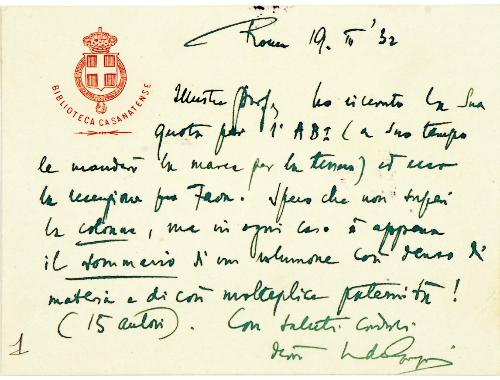 BIBLIOTECA CASANATENSE
Roma 19. II '32
Illustre Prof, ho ricevuto la Sua
quota per l'ABI (a suo tempo
le manderò la marca per la tessera) ed ecco
la recensione pro . Spero che non superi
la colonna, ma in ogni caso è appena
il sommario di un volumone così denso di
materia e di così molteplice paternità!
(15 autori). Con saluti cordiali
1